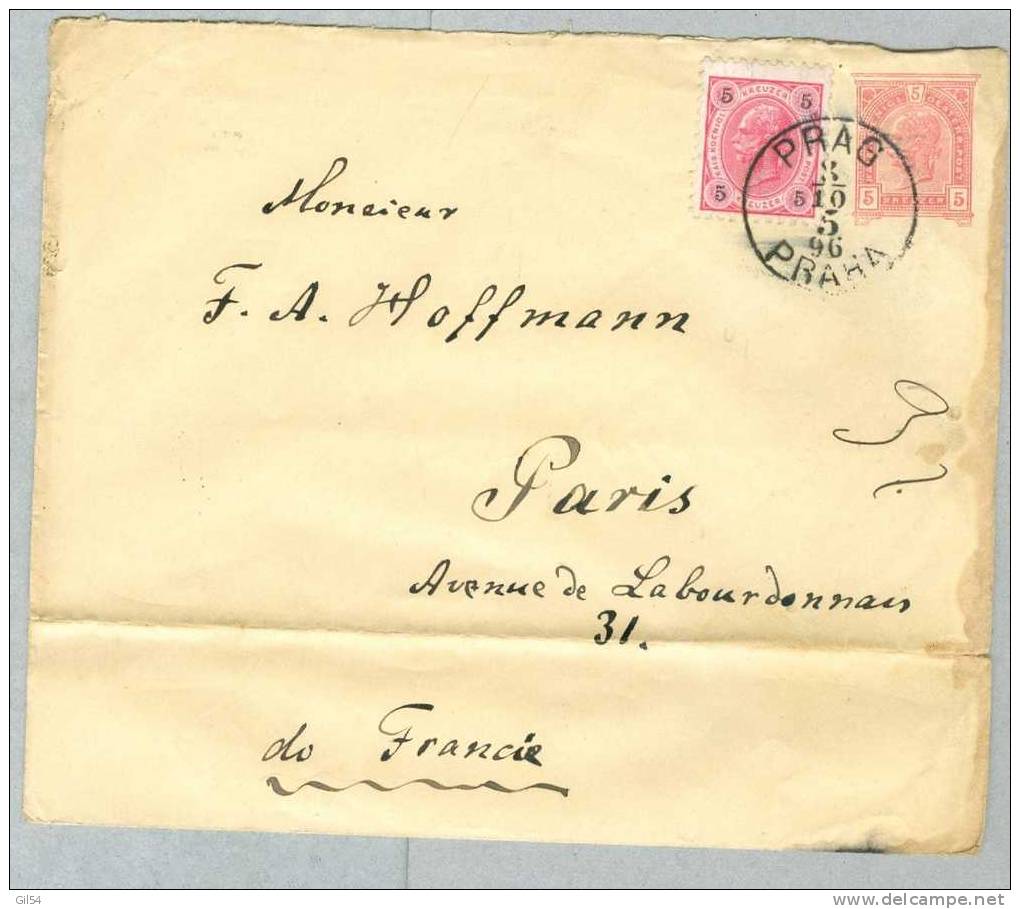 5 KREUZER 5
KAIS KOENIGL
POST
5 KREUZER 5
5
5 KREUZER 5
PRAG
10
5
96
PRAHA
Monsieur
F. A. Hoffmann
Paris
Avenue de Labourdonnais
31.
do Francie
Gil54
www.delcampe.net